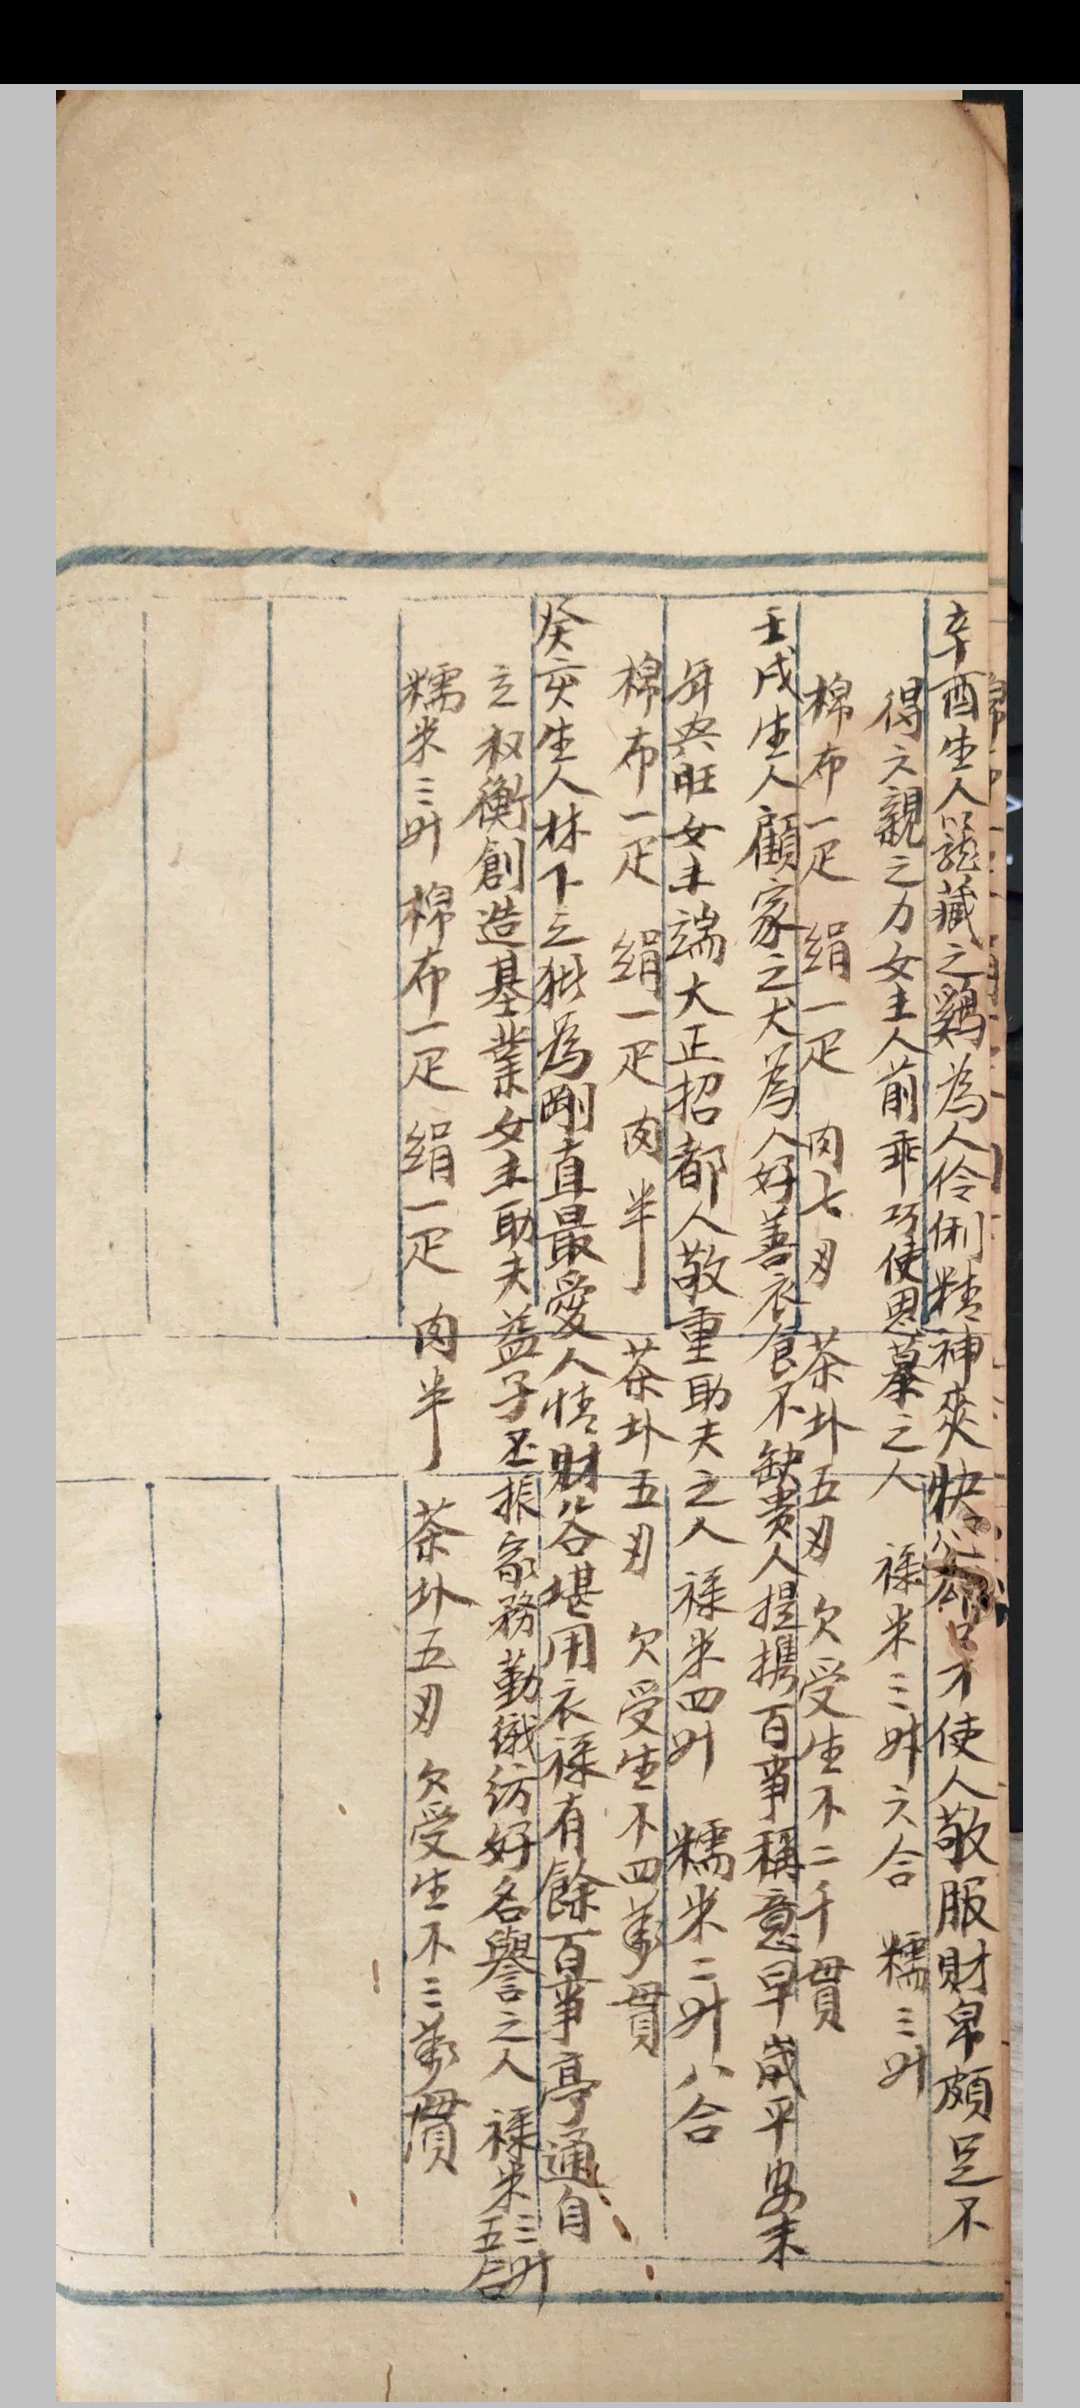 辛酉生人籠藏之鷄為人伶俐精神爽快口才使人敬服財帛頗足不
得六親之力女主人前乖巧使思慕之人 祿米三升六合 糯三升
棉布一疋 絹一疋 肉七刄 茶圤五刄 欠受生不二千貫
壬戌生人顧家之犬為人好善衣食不缺貴人提携百事稱意早歲平安末
年興旺女主端大正招都人敬重助夫之人 祿米四升 糯米二升八合
棉布一疋 絹一疋 肉半 茶圤五刄 欠受生不四萬貫
癸亥生人林下之為剛直最愛人情財谷堪用衣祿有餘百事亭通自
立权衡創造基業女主助夫益子丕振家務勤紡好名譽之人 祿米三升五合
糯米三升 棉布一疋 絹一疋 肉半 茶圤五刄 欠受生不三萬貫